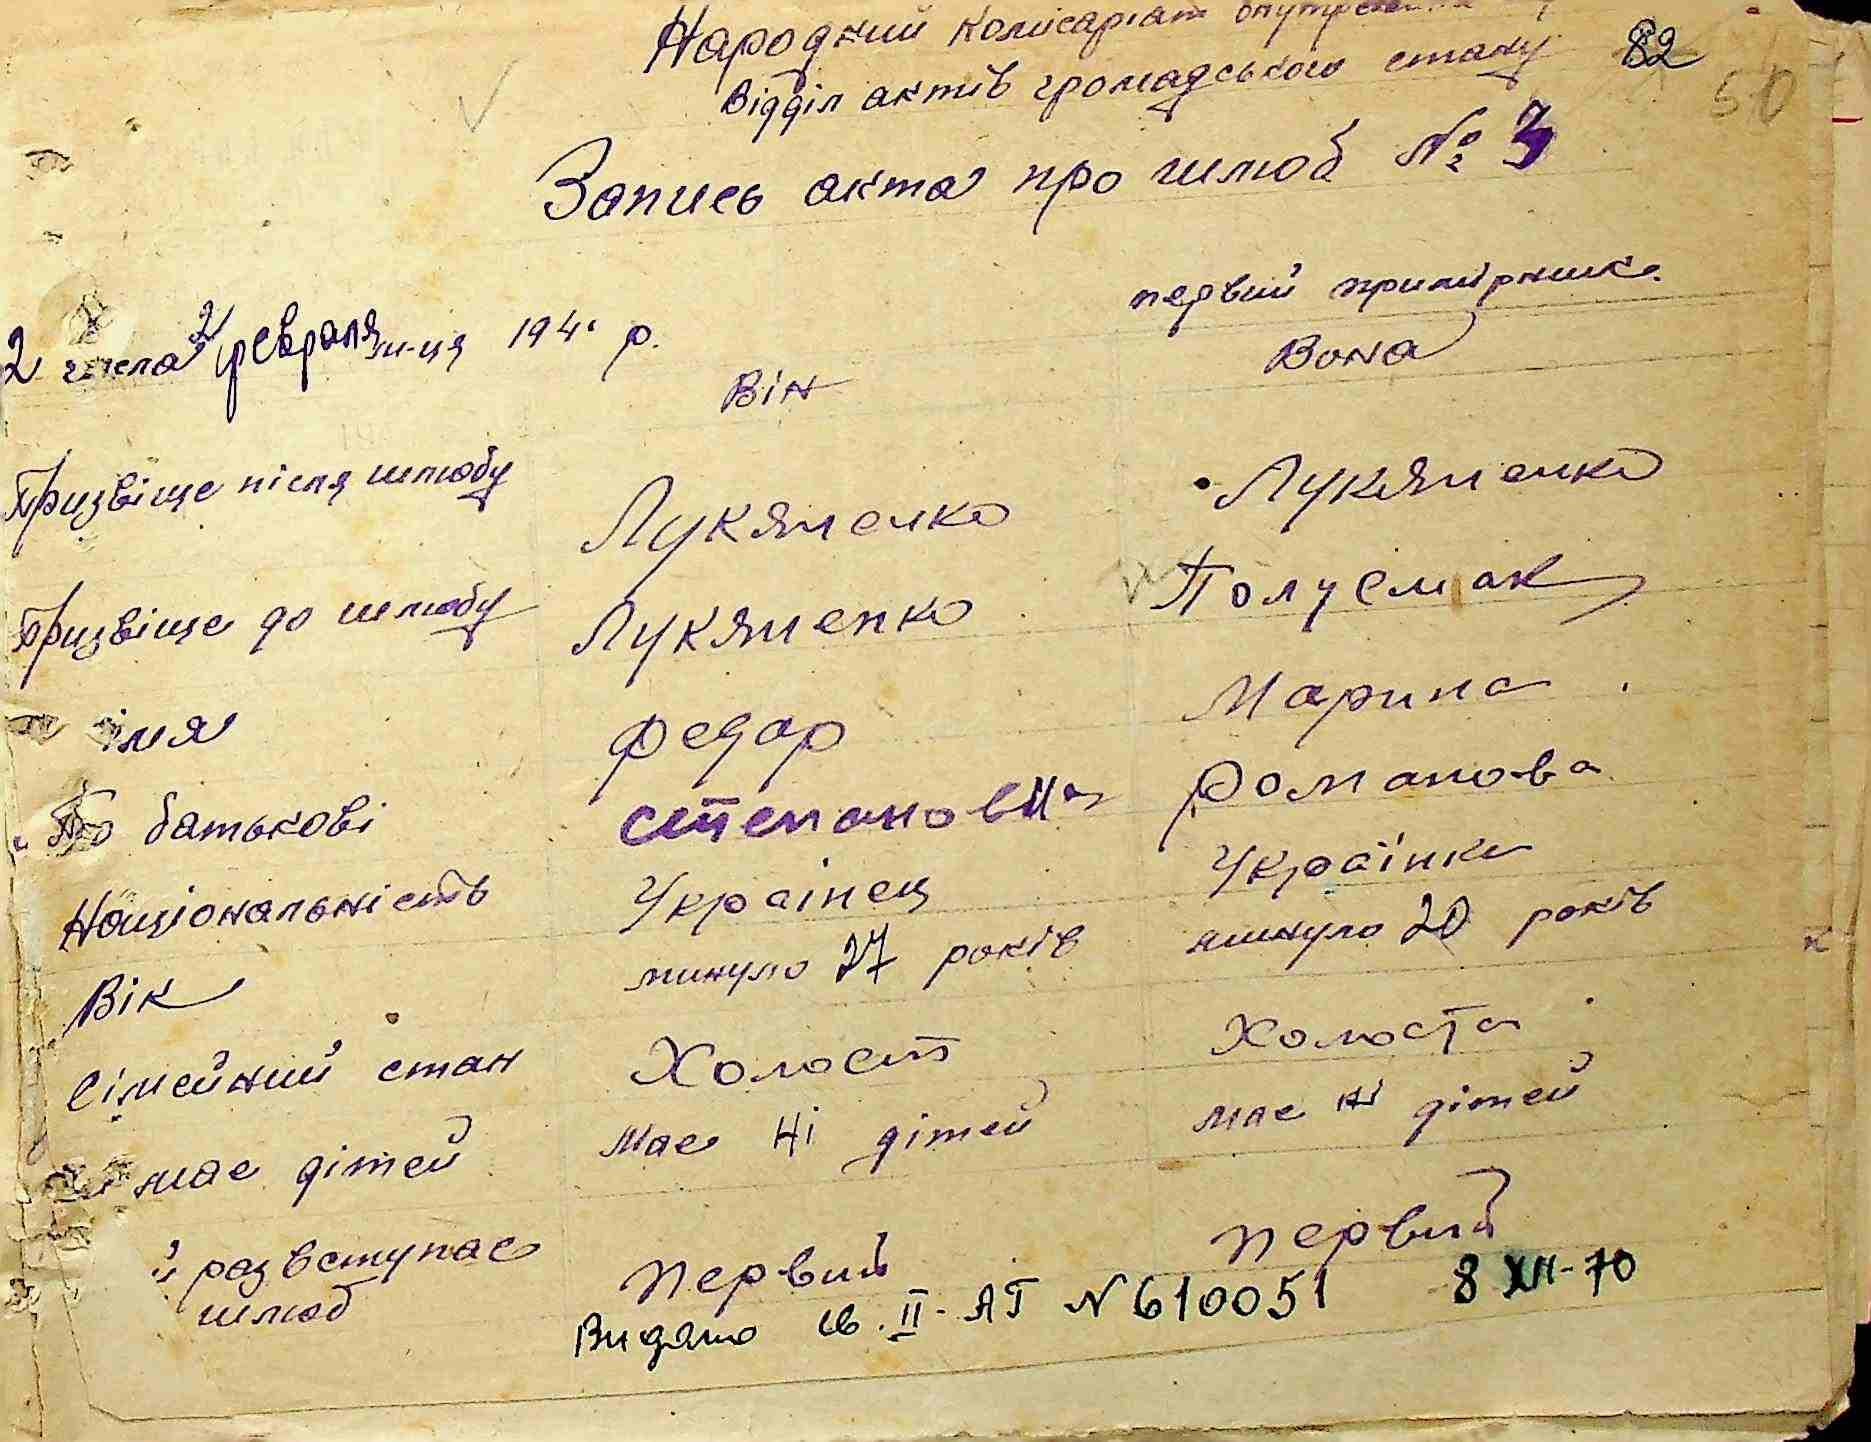 Народний Комісаріат внутрешніх
82
Відділ актів громадського стану
50
Запись акта про шлюб № 3
первий примірник
2 числа февраля м-ця 194 р.
Він Вона
Призвіще після шлюбу Лукяненко Лукяненко
Призвіще до шлюбу Лукяненко Полусмак
імя Федор Марина
По батькові Степанови Романова
Національність Українец Українка
Вік минуло 27 років минуло 20 років
Сімейний стан Холост Холоста
має дітей має ні дітей має ні дітей
й раз вступає первий первий
шлюб
Видано св. II-АГ N 610051 8 XII-70